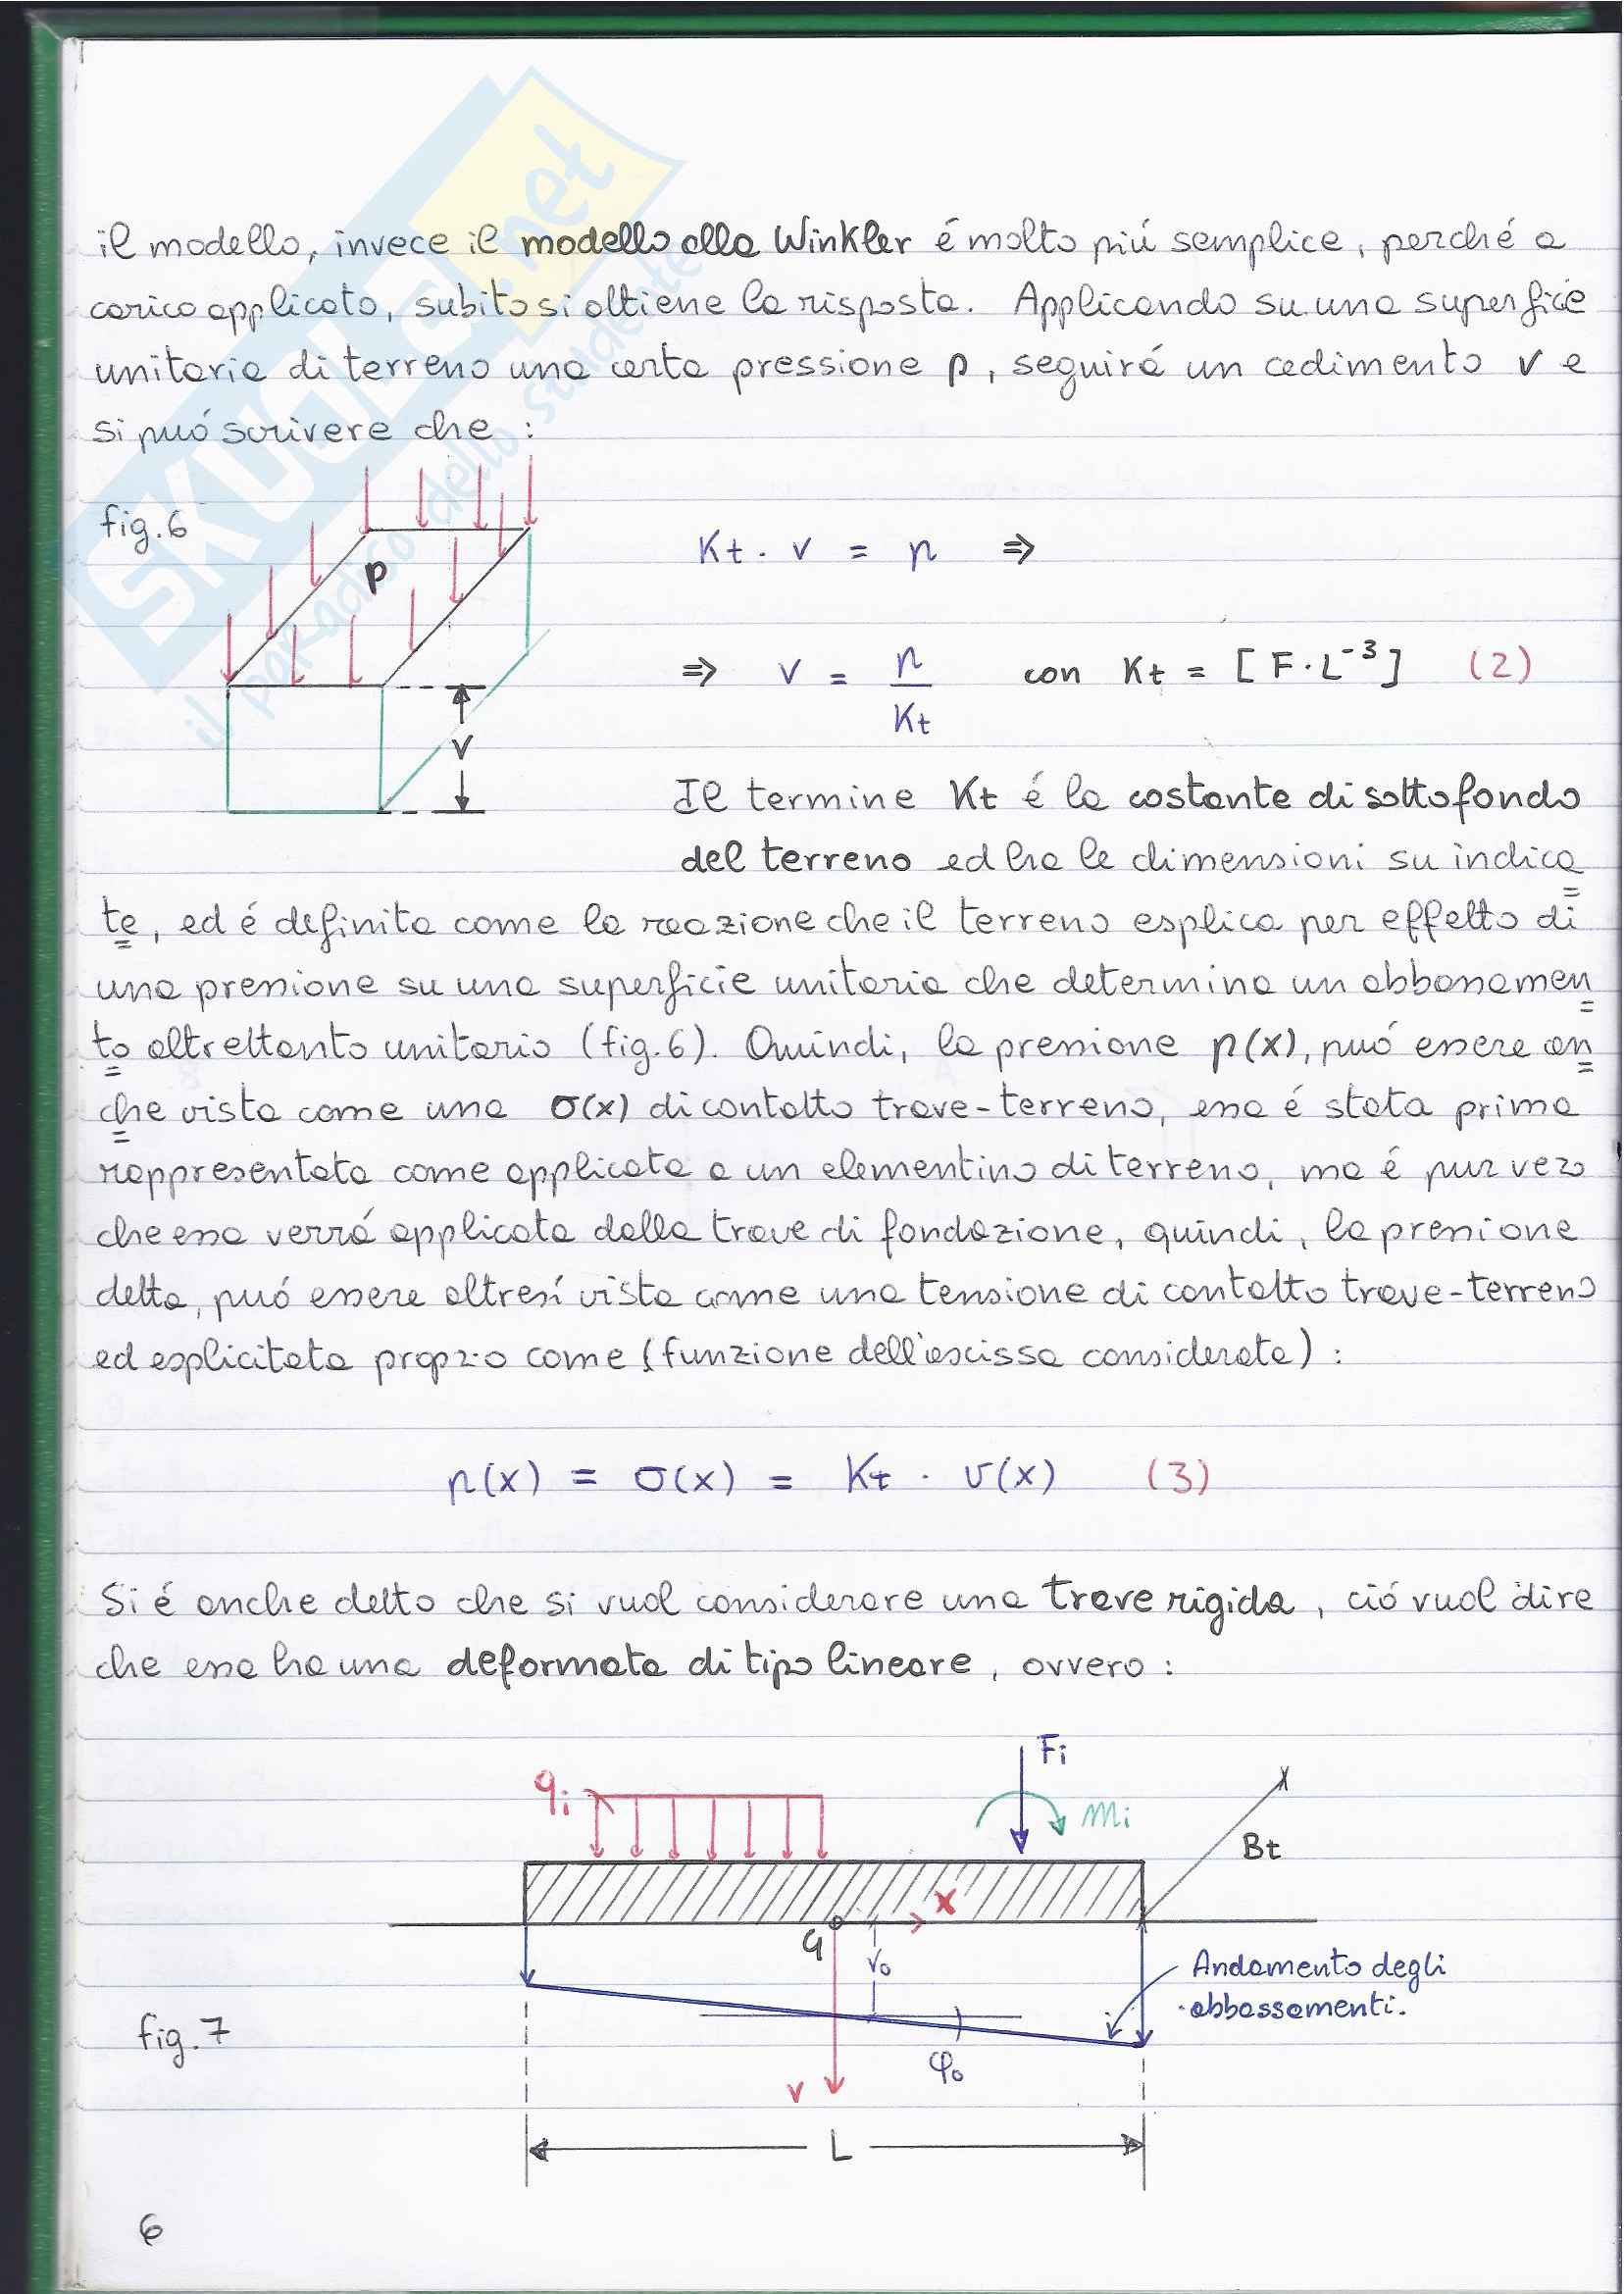 il modello, invece il modello alla Winkler é molto piú semplice, perché a
carico applicato, subito si ottiene la risposta. Applicando su una superficie
unitaria di terreno una certa pressione p, seguirá un cedimento v e
si puó scrivere che :
fig.6
p
v
Kt · v = p ⇒
⇒ v = p / Kt con Kt = [F·L⁻³] (2)
Il termine Kt é la costante di sottofondo
del terreno ed ha le dimensioni su indica
te, ed é definita come la reazione che il terreno esplica per effetto di
una pressione su una superficie unitaria che determina un abbassamen
to altrettanto unitario (fig.6). Quindi, la pressione p(x), puó essere an
che vista come una σ(x) di contatto trave-terreno, essa é stata prima
rappresentata come applicata a un elementino di terreno, ma é pur vero
che essa verrá applicata dalla trave di fondazione, quindi, la pressione
detta, puó essere altresí vista come una tensione di contatto trave-terreno
ed esplicitata proprio come (funzione dell'ascissa considerata) :
p(x) = σ(x) = Kt · v(x) (3)
Si é anche detto che si vuol considerare una trave rigida, ció vuol dire
che essa ha una deformata di tipo lineare, ovvero :
Fi
qi
mi
Bt
x
G
v₀
Andamento degli
abbassamenti.
fig.7
φ₀
v
L
6
SKUOLA.net
il paradiso dello studente